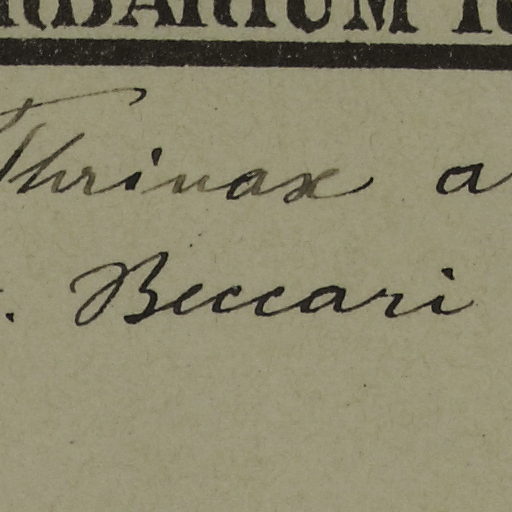 RBARIUM
Thrinax a
. Beccari